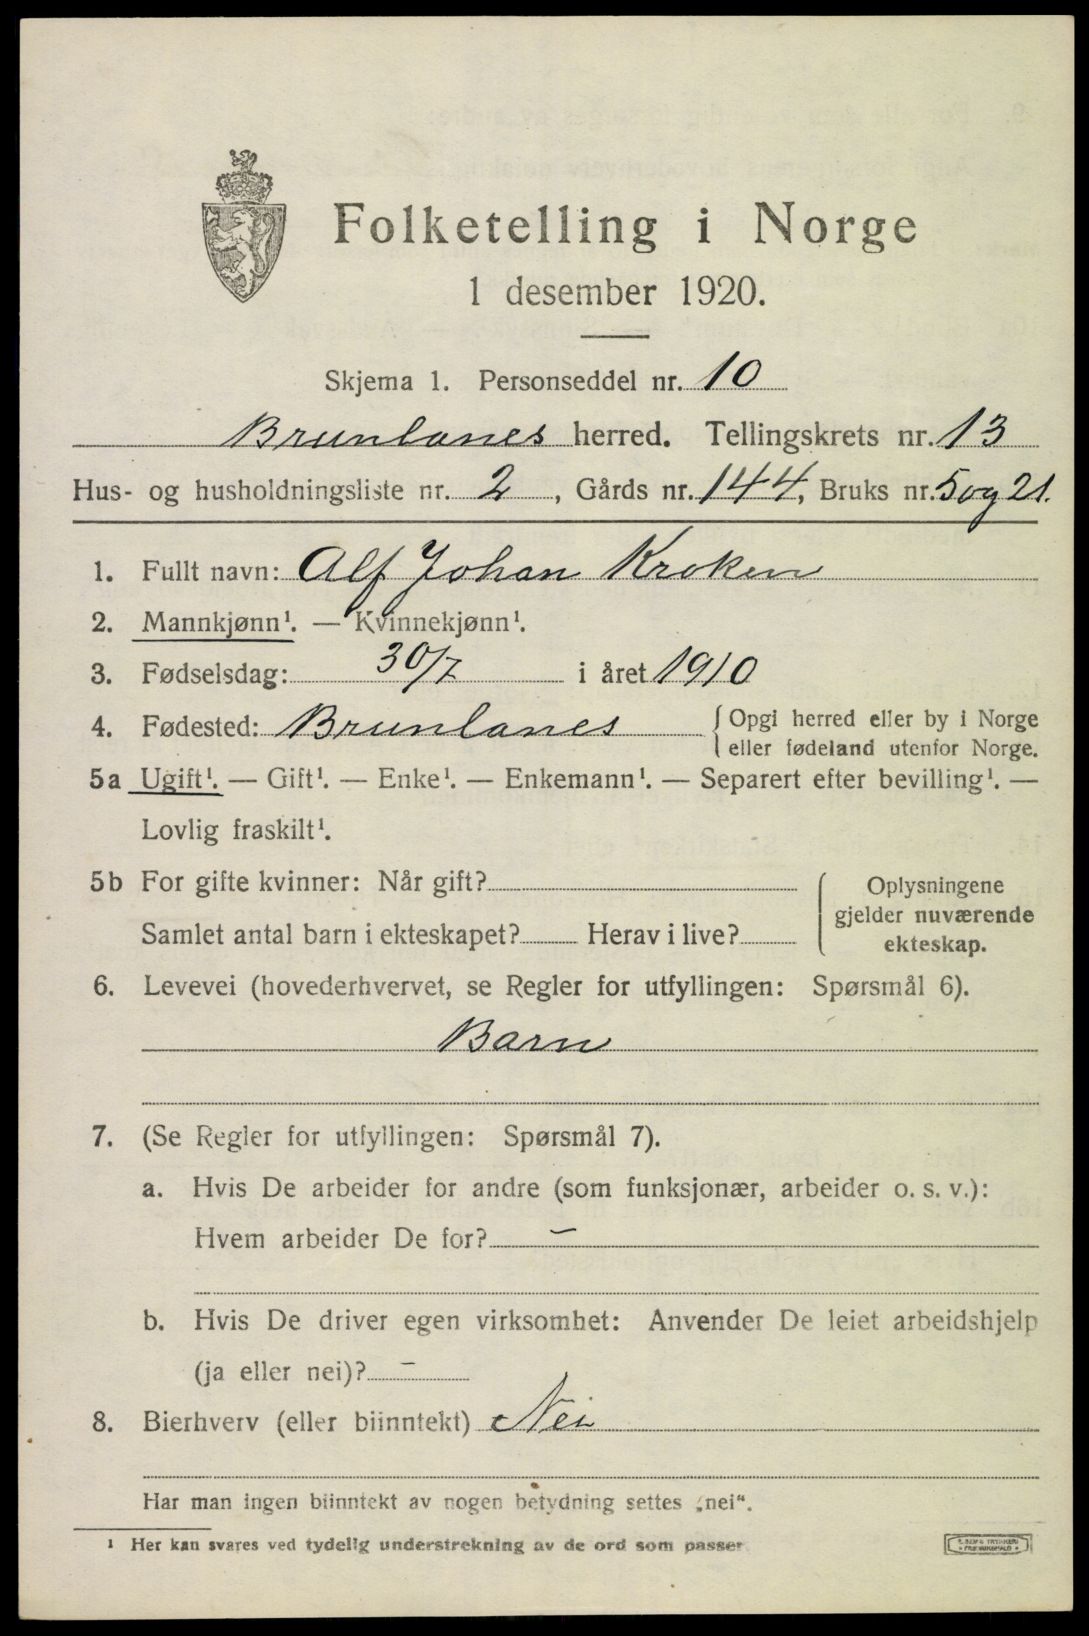 Folketelling i Norge
1 desember 1920.
Skjema 1. Personseddel nr. 10
Brunlanes herred. Tellingskrets nr. 13
Hus- og husholdningsliste nr. 2, Gårds nr. 144, Bruks nr. 5 og 21.
1. Fullt navn: Alf Johan Kroken
2. Mannkjønn¹. — Kvinnekjønn¹.
3. Fødselsdag: 30/7 i året 1910
4. Fødested: Brunlanes { Opgi herred eller by i Norge
eller fødeland utenfor Norge.
5a Ugift¹. — Gift¹. — Enke¹. — Enkemann¹. — Separert efter bevilling¹. —
Lovlig fraskilt¹.
5b For gifte kvinner: Når gift?
Samlet antal barn i ekteskapet? Herav i live?
{ Oplysningene
gjelder nuværende
ekteskap.
6. Levevei (hovederhvervet, se Regler for utfyllingen: Spørsmål 6).
Barn
7. (Se Regler for utfyllingen: Spørsmål 7).
a. Hvis De arbeider for andre (som funksjonær, arbeider o. s. v.):
Hvem arbeider De for? —
b. Hvis De driver egen virksomhet: Anvender De leiet arbeidshjelp
(ja eller nei)? —
8. Bierhverv (eller biinntekt) Nei
Har man ingen biinntekt av nogen betydning settes „nei“.
¹ Her kan svares ved tydelig understrekning av de ord som passer